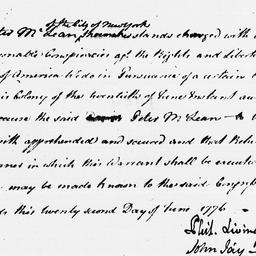 of the City of New York
Mc Lean stands charged with
Conspiracies agt the Rights and
of America We do in Pursuance of a certain
Colony of the twentieth of June Instant
cause the said Peter Mc Lean to
with apprehended and secured and that
in which this Warrant shall be executed
may be made known to the said Congress
this twenty second Day of June 1776
Phil. Livin
John Jay